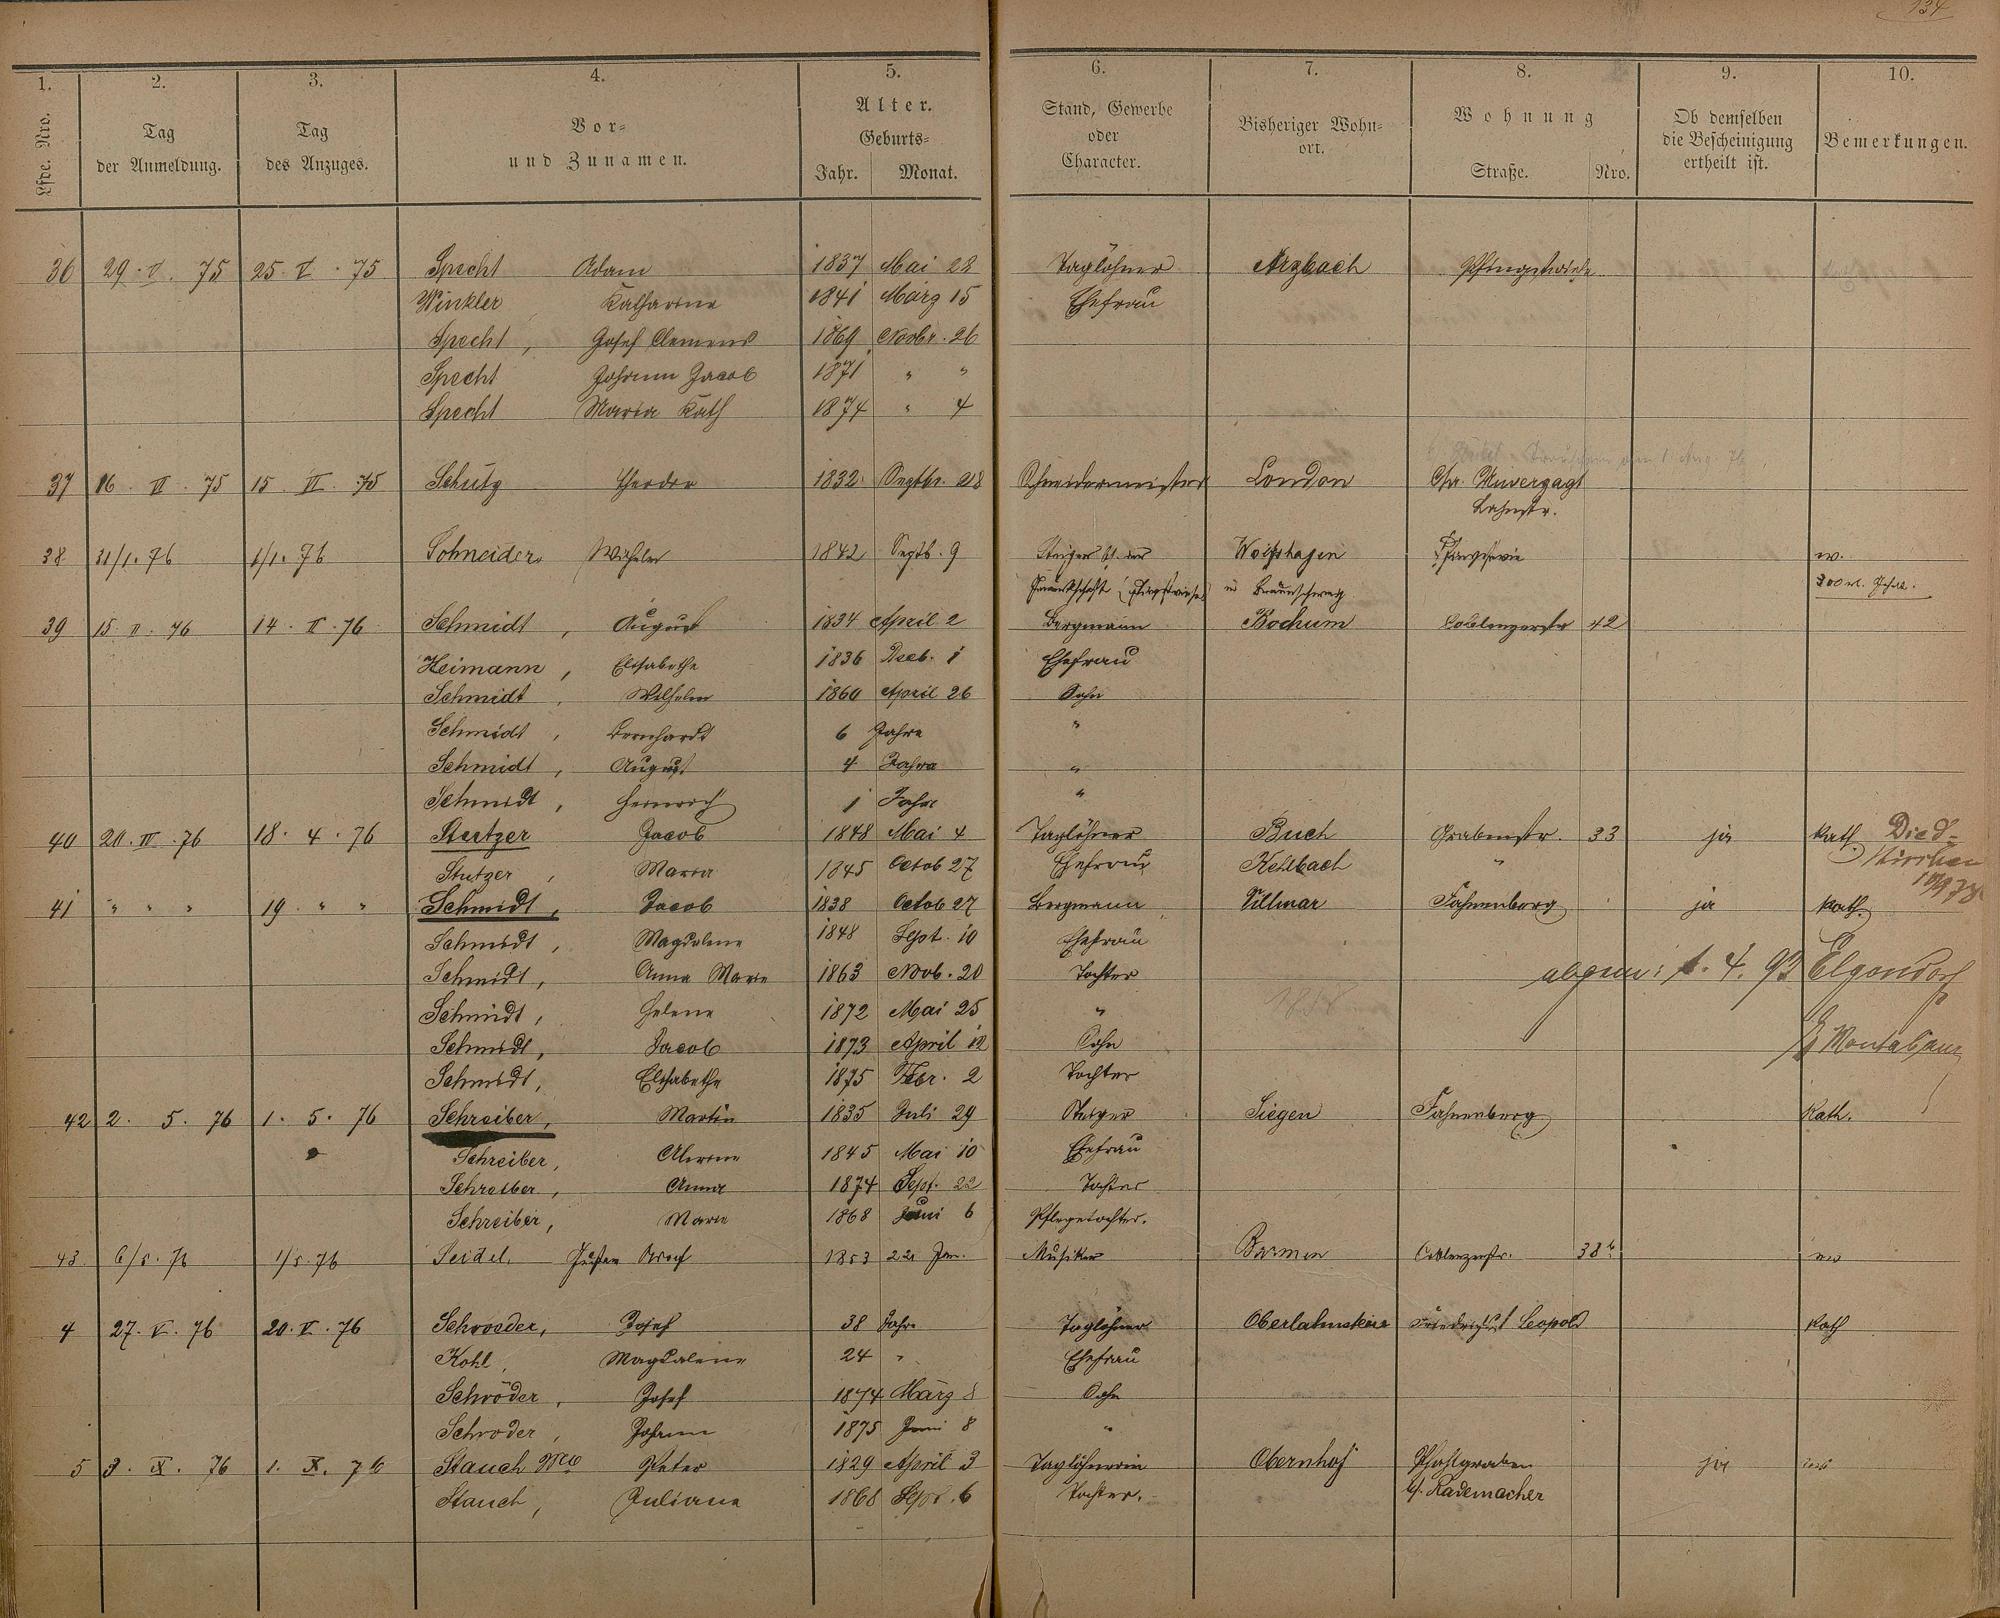 134
1. 2. 3. 4. 5. 6. 7. 8. 9. 10.
Lfde. Nro. Tag der Anmeldung. Tag des Anzuges. Vor- und Zunamen. Alter. Geburts- Jahr. Monat. Stand, Gewerbe oder Character. Bisheriger Wohn- ort. Wohnung Straße. Nro. Ob demselben die Bescheinigung ertheilt ist. Bemerkungen.
36 29. V. 75 25. V. 75 Specht Adam 1837 Mai 28 Taglöhner Arzbach Pfingstwiese
Winkler Katharina 1841 März 15 Ehefrau
Specht, Josef Clemens 1869 Novbr. 26
Specht Johann Jacob 1871 " "
Specht Maria Kath 1874 " 4
37 16. VI. 75 15. VI. 75 Schutz Theodor 1832 Septbr. 28 Schneidermeister London Chr. Unverzagt
Lahnstr.
38 31/1. 76 1/1. 76 Schneider Wilhelm 1842 Septb. 9 Steiger Wolfshagen
in Braunschweig 300 M.
39 15. II. 76 14. II. 76 Schmidt, August 1834 April 2 Bergmann Bochum Coblenzerstr 42
Heimann, Elisabethe 1836 Dseb. 1 Ehefrau
Schmidt, Wilhelm 1860 April 26 Sohn
Schmidt, Bernhardt 6 Jahre "
Schmidt, August 4 Jahre "
Schmidt, Heinrich 1 Jahr "
40 20. IV. 76 18. 4. 76 Stutzer Jacob 1848 Mai 4 Taglöhner Buch Grabenstr. 33 ja kath Died-
kirchen
Stutzer, Maria 1845 Octob 27 Ehefrau Kehlbach "
41 " " " 19. " " Schmidt, Jacob 1838 Octob 27 Bergmann Villmar Fahnenberg ja kath.
Schmidt, Magdalena 1848 Sept. 10 Ehefrau
Schmidt, Anna Marie 1863 Nov. 20 Tochter abgem: 1. 4. 93 Elgendorf
Schmidt, Helene 1872 Mai 25 "
Schmidt, Jacob 1873 April 12 Sohn Montabaur
Schmidt, Elisabethe 1875 Febr. 2 Tochter
42 2. 5. 76 1. 5. 76 Schreiber, Martin 1835 Juli 29 Steiger Siegen Fahnenberg Kath.
Schreiber, Alwine 1845 Mai 10 Ehefrau
Schreiber, Anna 1874 Sept. 22 Tochter
Schreiber, Marie 1868 Juni 6 Pflegetochter.
43 6/5. 76 1/5. 76 Seidel, 1853 22 Jan. Musiker Barmen Coblenzerstr. 38 b
4 27. V. 76 20. V. 76 Schroeder, Josef 38 Jahre Taglöhner Oberlahnstein Friedrichst Leopold kath
Kohl, Magdalene 24 " Ehefrau
Schröder, Josef 1874 März 8 Sohn
Schroder, Johann 1875 Juni 8 "
5 3. X. 76 1. X. 76 Stauch Wwe Peter 1829 April 3 Taglöhnerin Obernhof Pfahlgraben ja
Stauch, Juliane 1868 Sept. 6 Tochter. b/. Rademacher